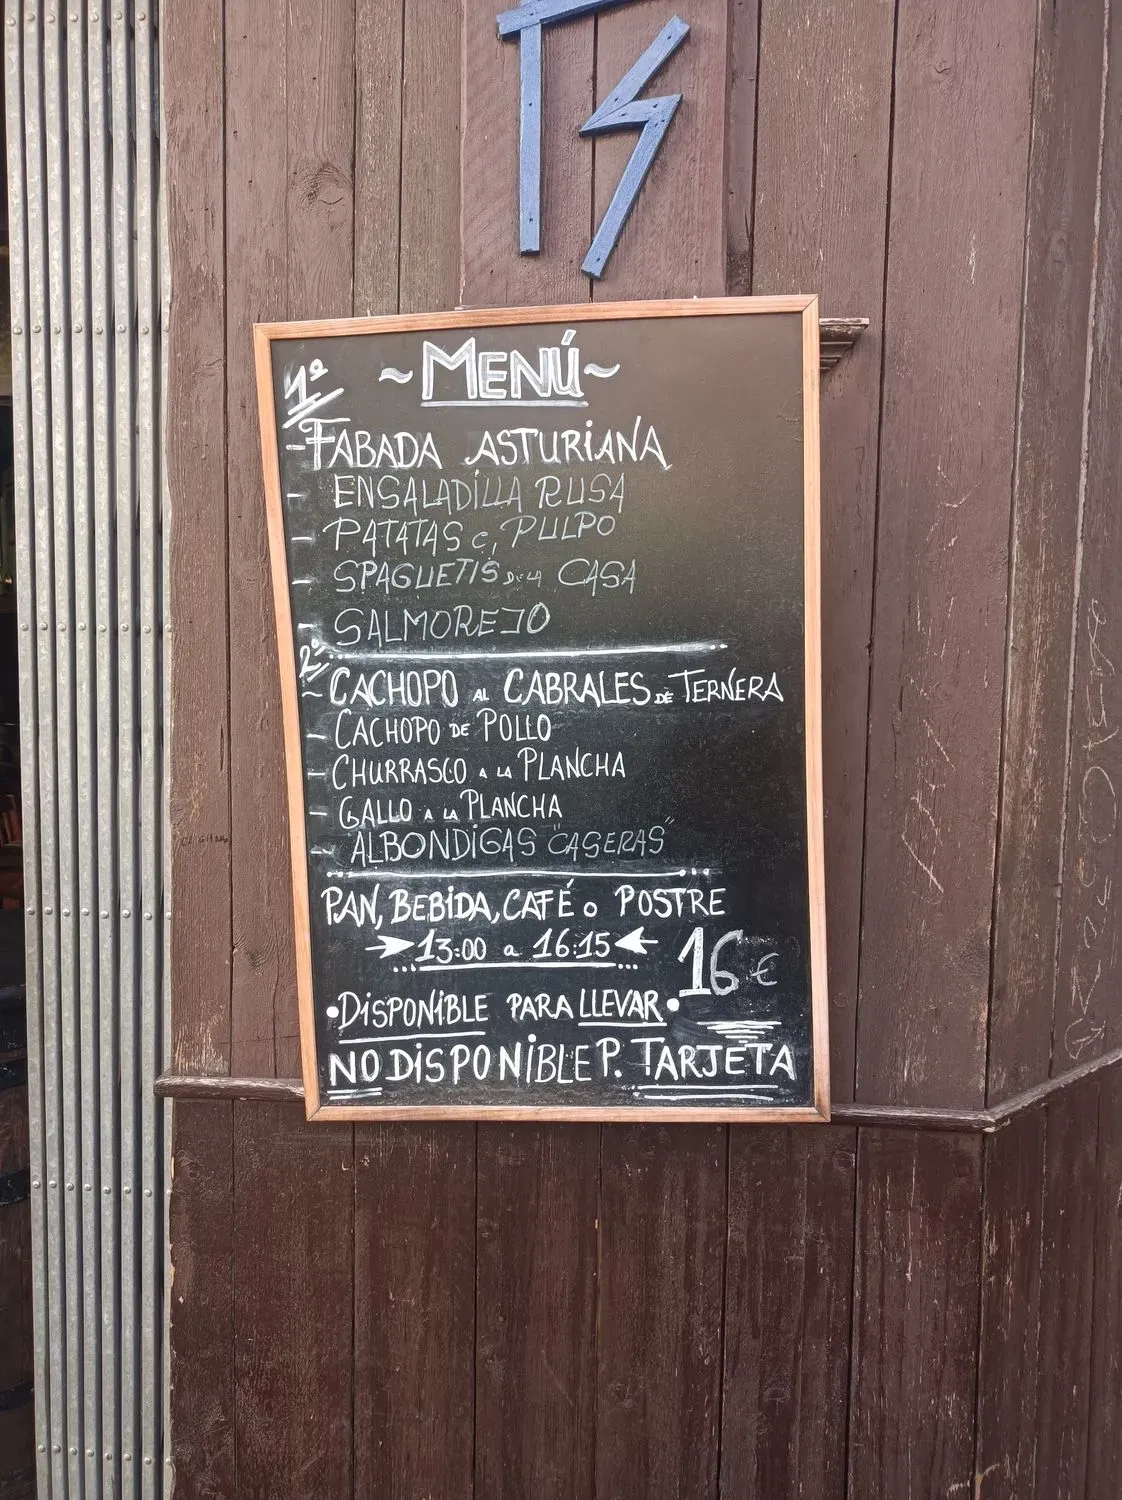 TS
1º
~MENÚ~
- FABADA ASTURIANA
- ENSALADILLA RUSA
- PATATAS C, PULPO
- SPAGUETIS DE LA CASA
- SALMOREJO
2º
- CACHOPO AL CABRALES DE TERNERA
- CACHOPO DE POLLO
- CHURRASCO A LA PLANCHA
- GALLO A LA PLANCHA
- ALBONDIGAS "CASERAS"
PAN, BEBIDA, CAFÉ o POSTRE
13:00 a 16:15
16 €
•DISPONIBLE PARA LLEVAR•
NO DISPONIBLE P. TARJETA